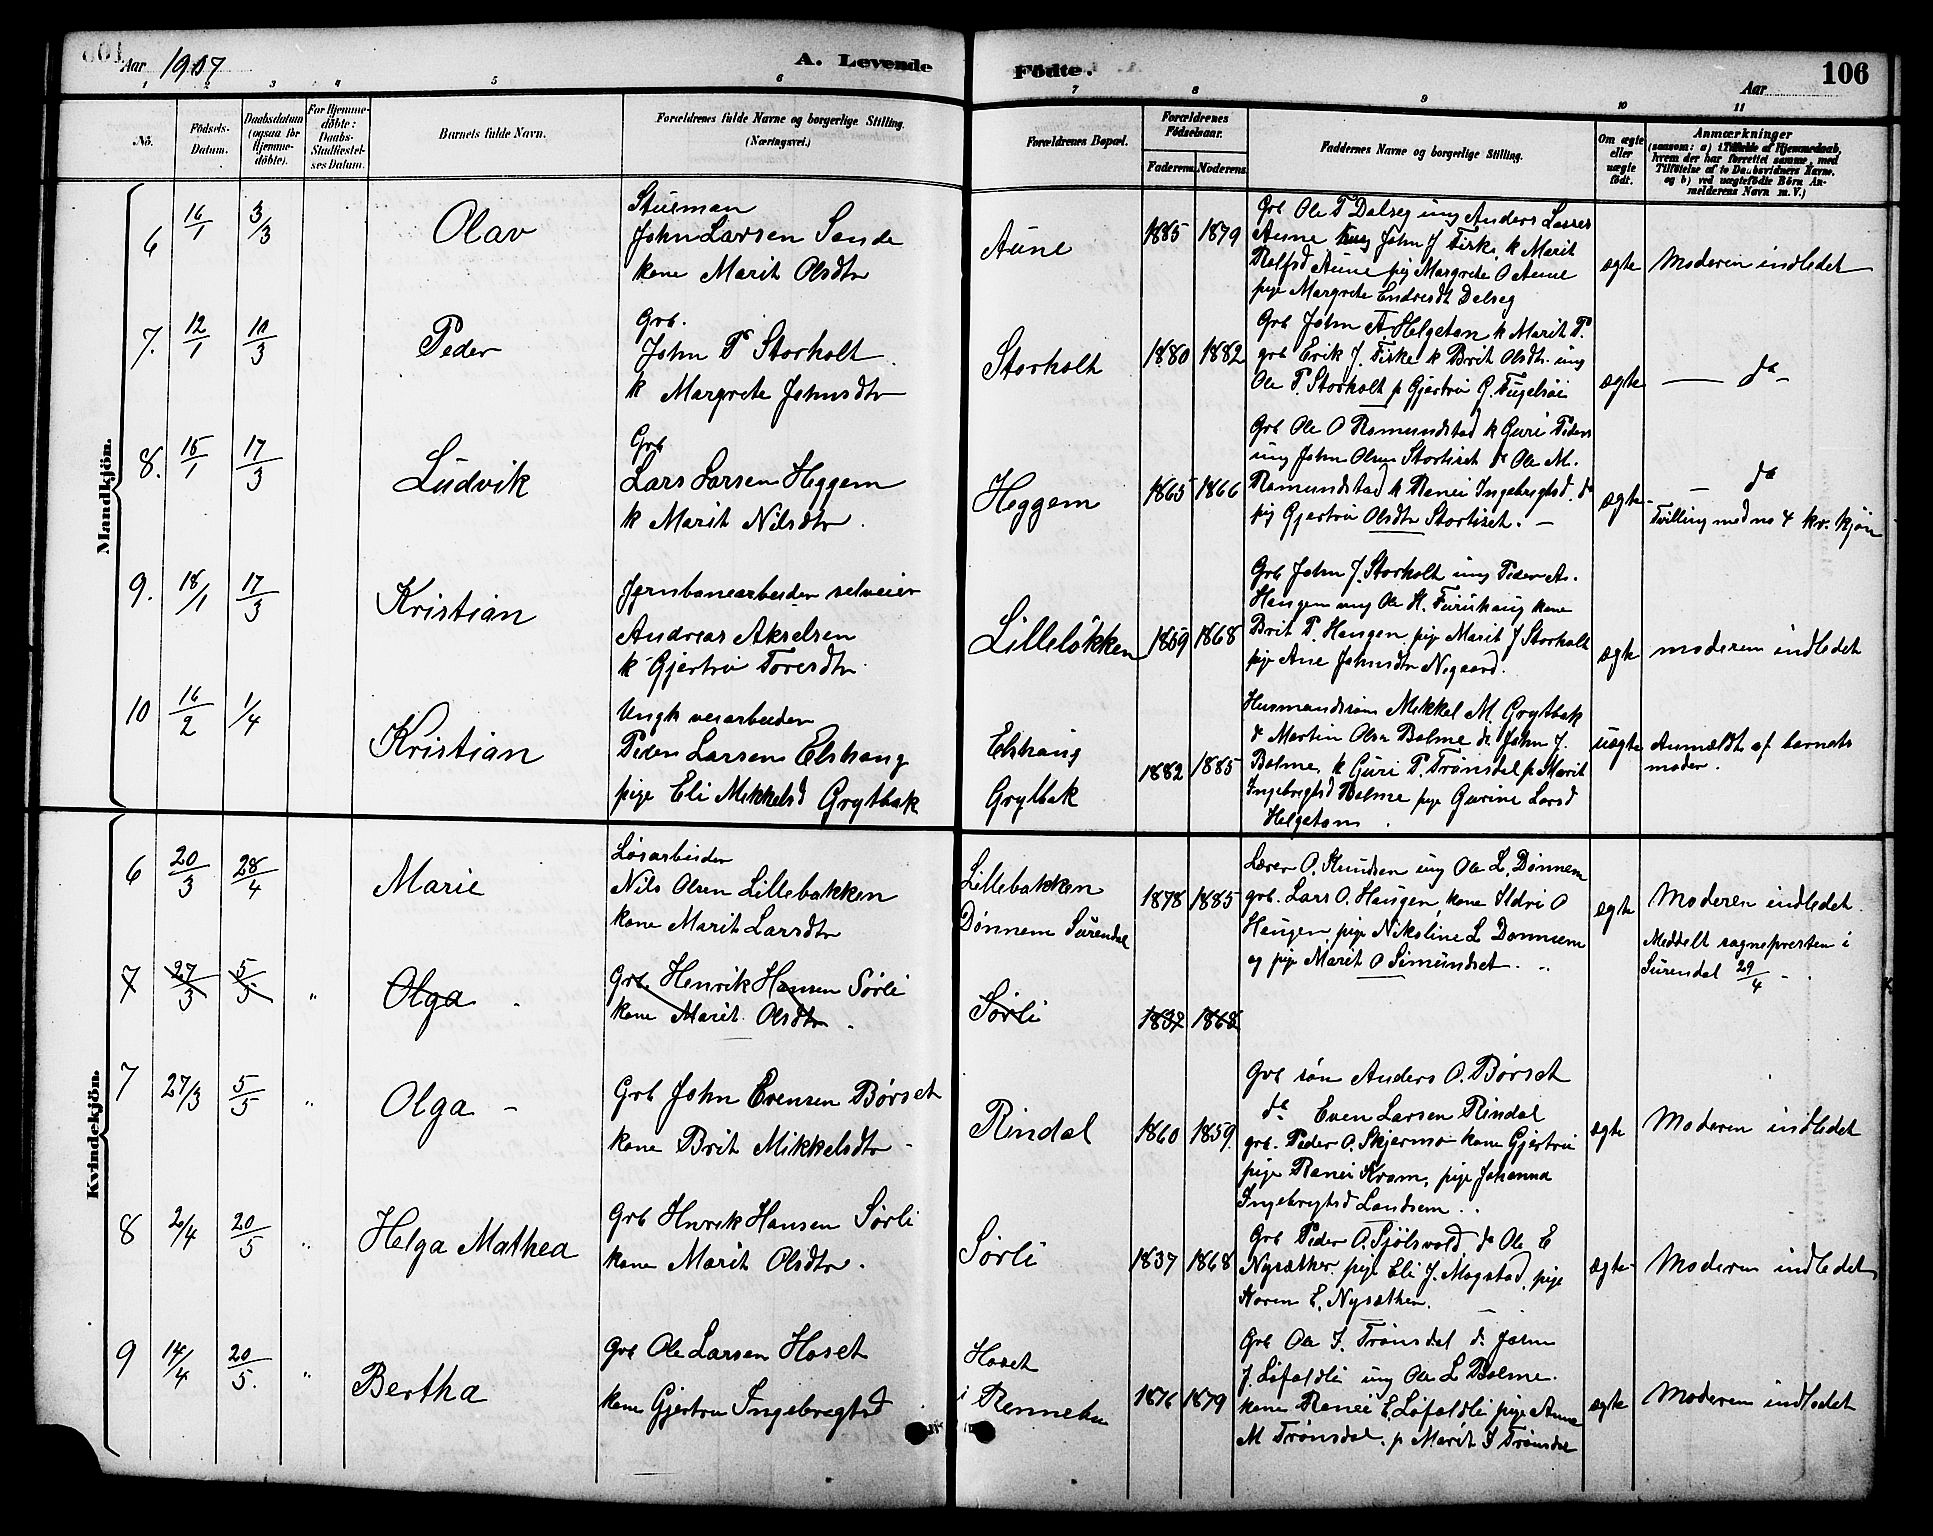 Aar 1907
A. Levende
Födte.
Aar
106
1 2 3 4 5 6 7 8 9 10 11
No.
Födsels-Datum.
Daabsdatum (ogsaa for Hjemme-döbte).
For Hjemme-döbte: Daabs-Stadfæstel-ses Datum.
Barnets fulde Navn.
Forældrenes fulde Navne og borgerlige Stilling.
(Næringsvei.)
Forældrenes Bopæl.
Forældrenes Födselsaar.
Faderens. Moderens.
Faddernes Navne og borgerlige Stilling.
Om ægte eller uægte födt.
Anmærkninger
(saasom: a) i Tilfælde af Hjemmedaab, hvem der har forrettet samme, med Tilföielse af to Daabsvidners Navne, og b) ved uægtefödte Börn An-melderens Navn m. V.)
Mandkjön.
6 16/1 3/3 Olav
Stuerman
John Larsen Sande
kone Marit Olsdtr
Aune 1885 1879
Grb Ole T Dalseg ung Anders Larses
Aune ung John J Fiske, k Marit
Rolfsd Aune pig Margrete O Aune
pige Margrete Endresdt Dalseg
ægte Moderen indledet
7. 12/1 10/3 Peder
Grb.
John P Storholt
k Margrete Johnsdtr
Storholt 1880 1882
Grb John A Helgetun k Marit P.
grb Erik J. Fiske k Brit Olsdtr ung
Ole P. Storholt p Gjertru G. Fugelsøi
ægte — do -
8. 15/1 17/3 Ludvik
Grb
Lars Larsen Heggem
k Marit Nilsdtr
Heggem 1865 1866
Grb Ole O Romundstad k Guri Peders
ung John Olsen Stortiset do Ole M.
Romundstad k Ranei Ingebregtsd. do
pig Gjertru Olsdtr Stortiset. —
ægte - do
Tvilling med no 4 kv. kjøn
9. 18/1 17/3 Kristian
Jernbanearbeider selveier
Andreas Akselsen
k Gjertru Toresdtr
Lilleløkken 1859 1868
Grb John J. Storholt ung Peder As.
Haugen ung Ole H. Furuhaug kone
Brit P. Haugen pige Marit J Storholt
pige Ane Johnsdtr Negaard.
ægte moderen indledet
10 16/2 1/4 Kristian
Ungk veiarbeider
Peder Larsen Elshaug
pige Eli Mikkelsd Grytbak
Elshaug
Grytbak
1882 1885
Husmandssøn Mikkel M. Grytbak
do Martin Olsn Bolme do John J.
Bolme, k Guri P. Trønsdal p Marit
Ingebregtsd Bolme pige Gurine Larsd
Helgetun.
uægte Anmældt af barnets
moder.
Kvindekjön.
6 20/3 28/4 Marie
Løsarbeider
Nils Olsen Lillebakken
kone Marit Larsdtr
Lillebakken
Dønnem Surendal
1878 1885
Lærer O. Knudsen ung Ole L. Dønnem
grb. Lars O. Haugen, kone Ildri O
Haugen, pige Nikoline L Dønnem
og pige Marit O Simundset.
ægte Moderen indledet.
Meddelt sognepresten i
Surendal 29/4 -
7 27/3 5/5 " Olga
Grb. Henrik Hansen Sørli
kone Marit Olsdtr
Sørli 1837 1868
7 27/3 5/5 " Olga -
Grb John Evensen Børset
kone Brit Mikkelsdtr
Rindal 1860 1859
Grb søn Anders O. Børset
do Even Larsen Rindal
grb. Peder O. Skjermo kone Gjertru
pige Ranei Kvam, pige Johanna
Ingebregtsd Landsem
ægte Moderen indledet
8 2/4 20/5 " Helga Mathea
Grb Henrik Hansen Sørli
kone Marit Olsdtr.
Sørli 1837 1868
Grb Peder O. Sjølsvold do Ole E
Nysæther. pige Eli J. Mogstad, pige
Karen E. Nysæther.
ægte Moderen indledet
9 14/4 20/5. " Bertha
Grb Ole Larsen Hoset
kone Gjertru Ingebregtsd
Hoset
i Rennebu
1876 1879
Grb Ole J. Trønsdal do John
J. Løfaldli ung Ole L Bolme.
kone Ranei E. Løfaldli pige Anne
M Trønsdal. p Marit J Trønsdal
ægte Moderen indledet